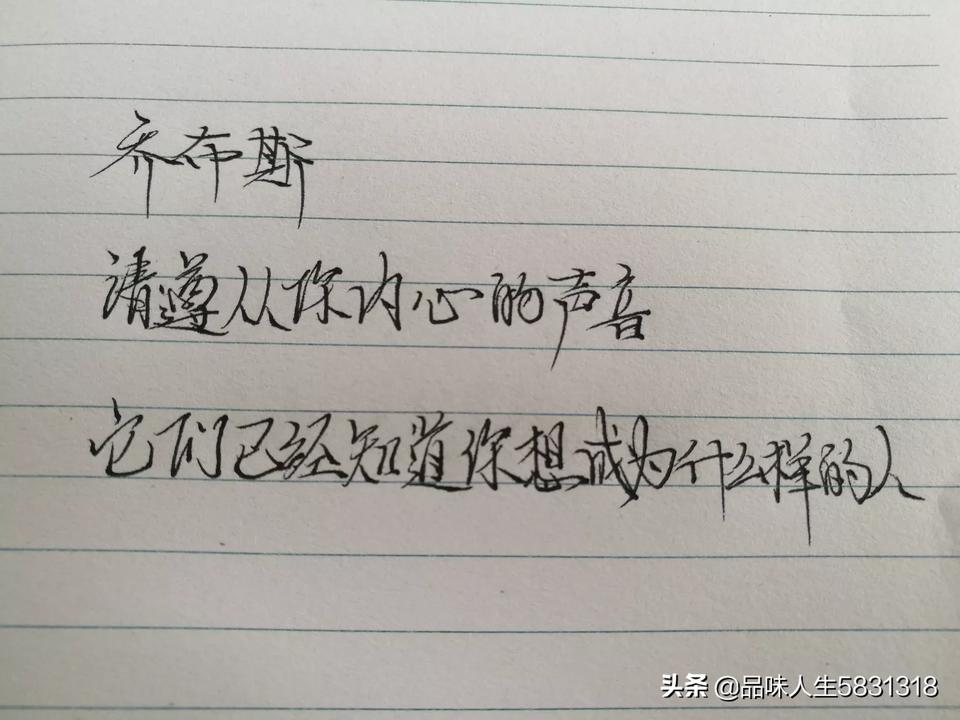 乔布斯
请遵从你内心的声音
它们已经知道你想成为什么样的人
头条 @品味人生5831318